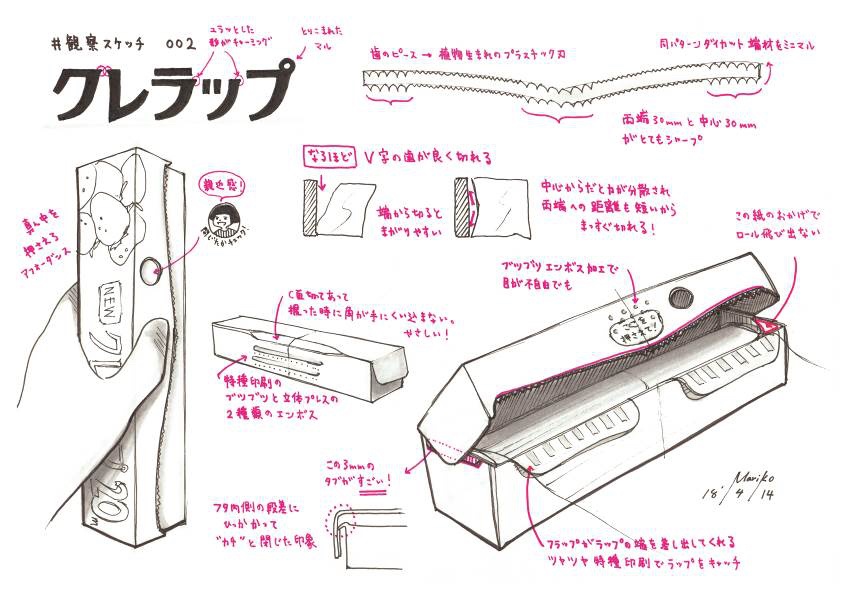 #観察スケッチ 002
ユラッとした
形がチャーミング
とりこまれた
マル
クレラップ
歯のピース → 植物生まれのプラスチック刃
同パターンダイカット 端材をミニマル
両端30mmと中心30mm
がとてもシャープ
なるほど V字の歯が良く切れる
端から切ると
まがりやすい
中心からだと力が分散され
両端への距離も短いから
まっすぐ切れる!
親近感!
真ん中を
押さえる
アフォーダンス
NEW
20m
この紙のおかげで
ロール飛び出ない
ブツブツエンボス加工で
目が不自由でも
C面切ってあって
握った時に角が手にくい込まない。
やさしい!
特種印刷の
ブツブツと立体プレスの
2種類のエンボス
この3mmの
タブがすごい!
フタ内側の段差に
ひっかかって
"カチ"と閉じた印象
フラップがラップの端を差し出してくれる
ツヤツヤ特種印刷でラップをキャッチ
Mariko
18'/4/14